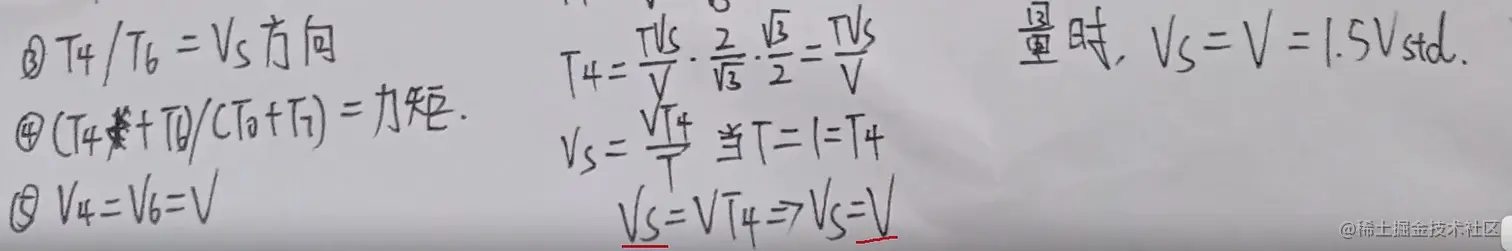 ③ T4/T6 = Vs方向
④ (T4+T6)/(T0+T7) = 力矩.
⑤ V4=V6=V
T4 = TVs/V · 2/√3 · √3/2 = TVs/V
Vs = VT4/T 当T=1=T4
Vs=VT4=>Vs=V
量时, Vs=V=1.5Vstd.
@稀土掘金技术社区